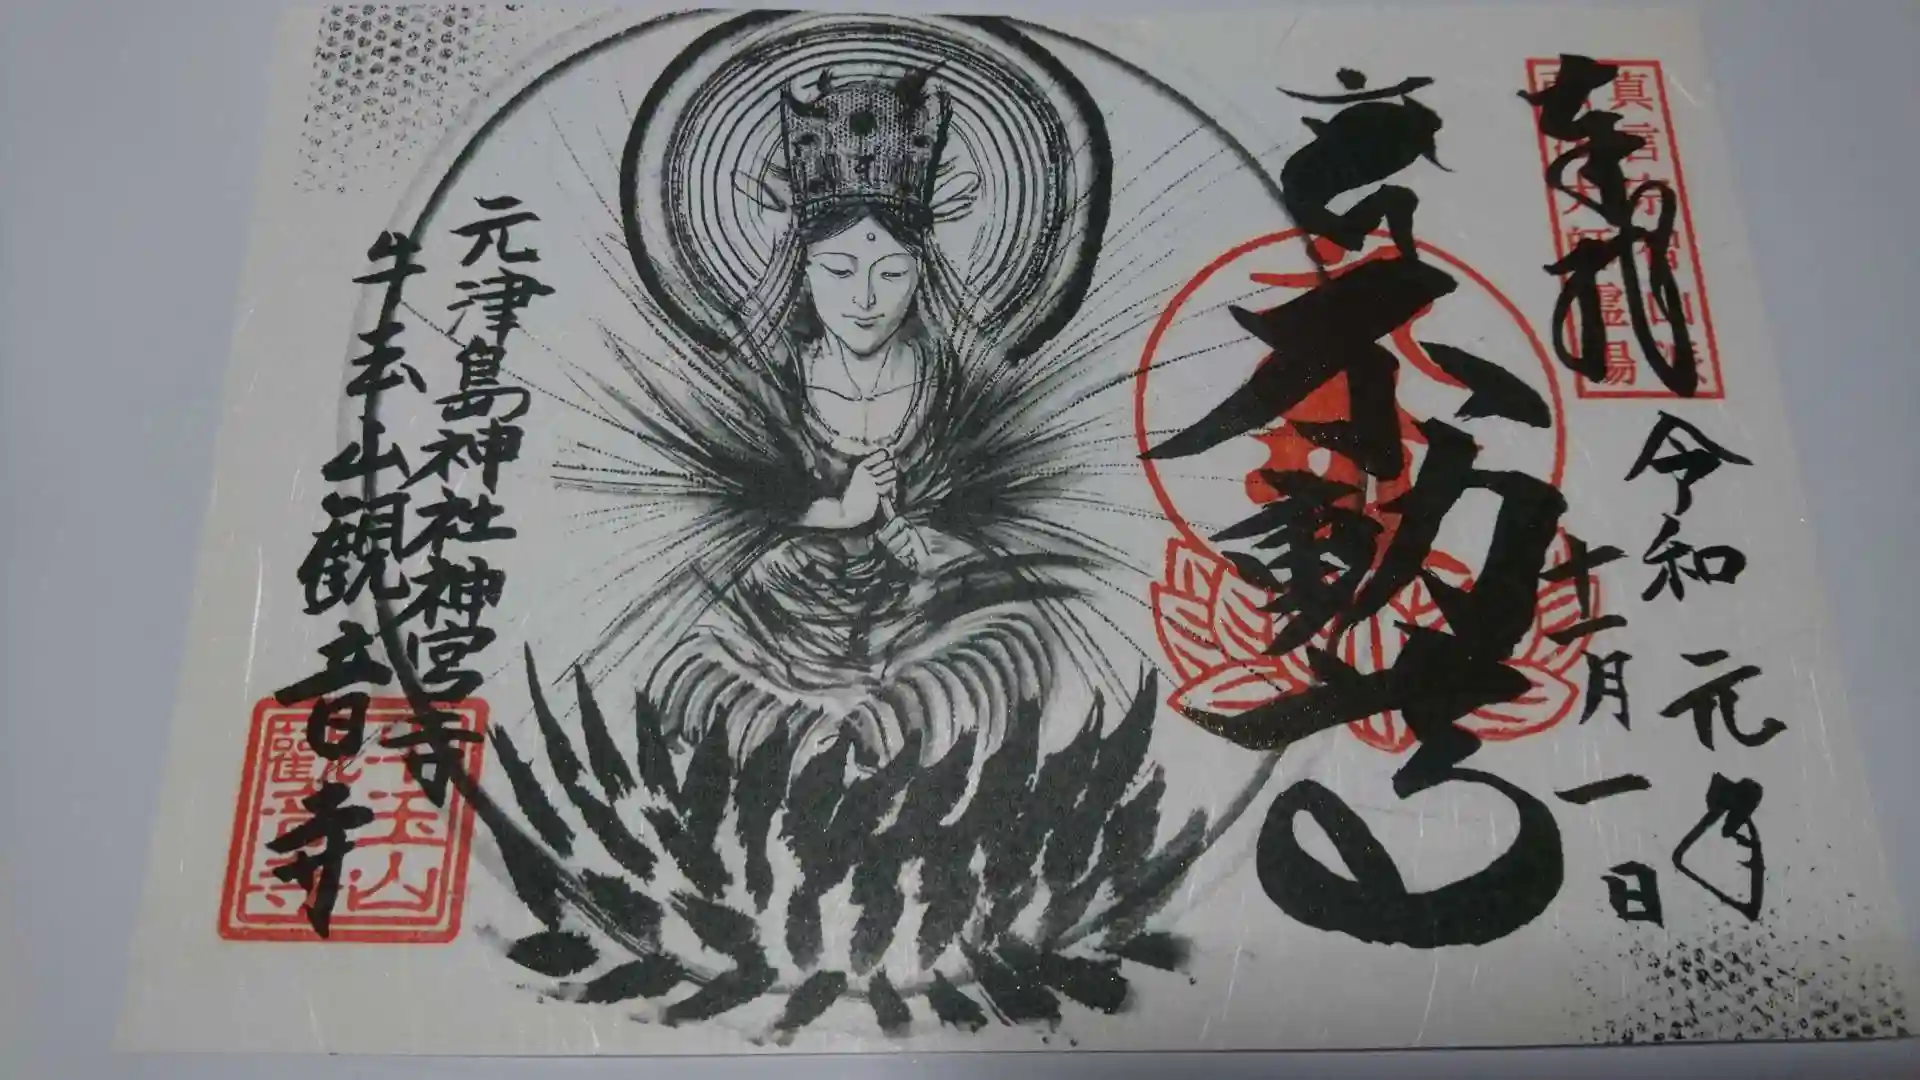 奉拝
真言宗智山派
大師霊場
令和元年
十一月一日
不動尊
元津島神社神宮寺
牛玉山觀音寺
牛玉山
觀音寺